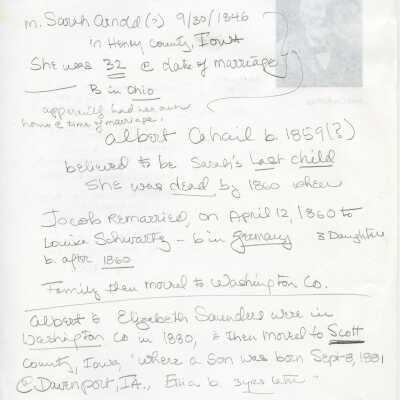 m. Sarah Arnold (?) 9/30/1846
in Henry County, Iowa
She was 32 @ date of marriage
B in Ohio
apparently had her own
home @ time of marriage!
Albert Cahail b. 1859(?)
believed to be Sarah's last child
She was dead by 1860 when
Jacob remarried, on April 12, 1860 to
Louisa Schwartz - b in Germany 3 Daughters
b. after 1860
Family then moved to Washington Co.
Albert & Elizabeth Saunders were in
Washington Co in 1880, & then moved to Scott
County, Iowa, "where a son was born Sept 8, 1881
@ Davenport, IA., Etta b. 3 yrs later"